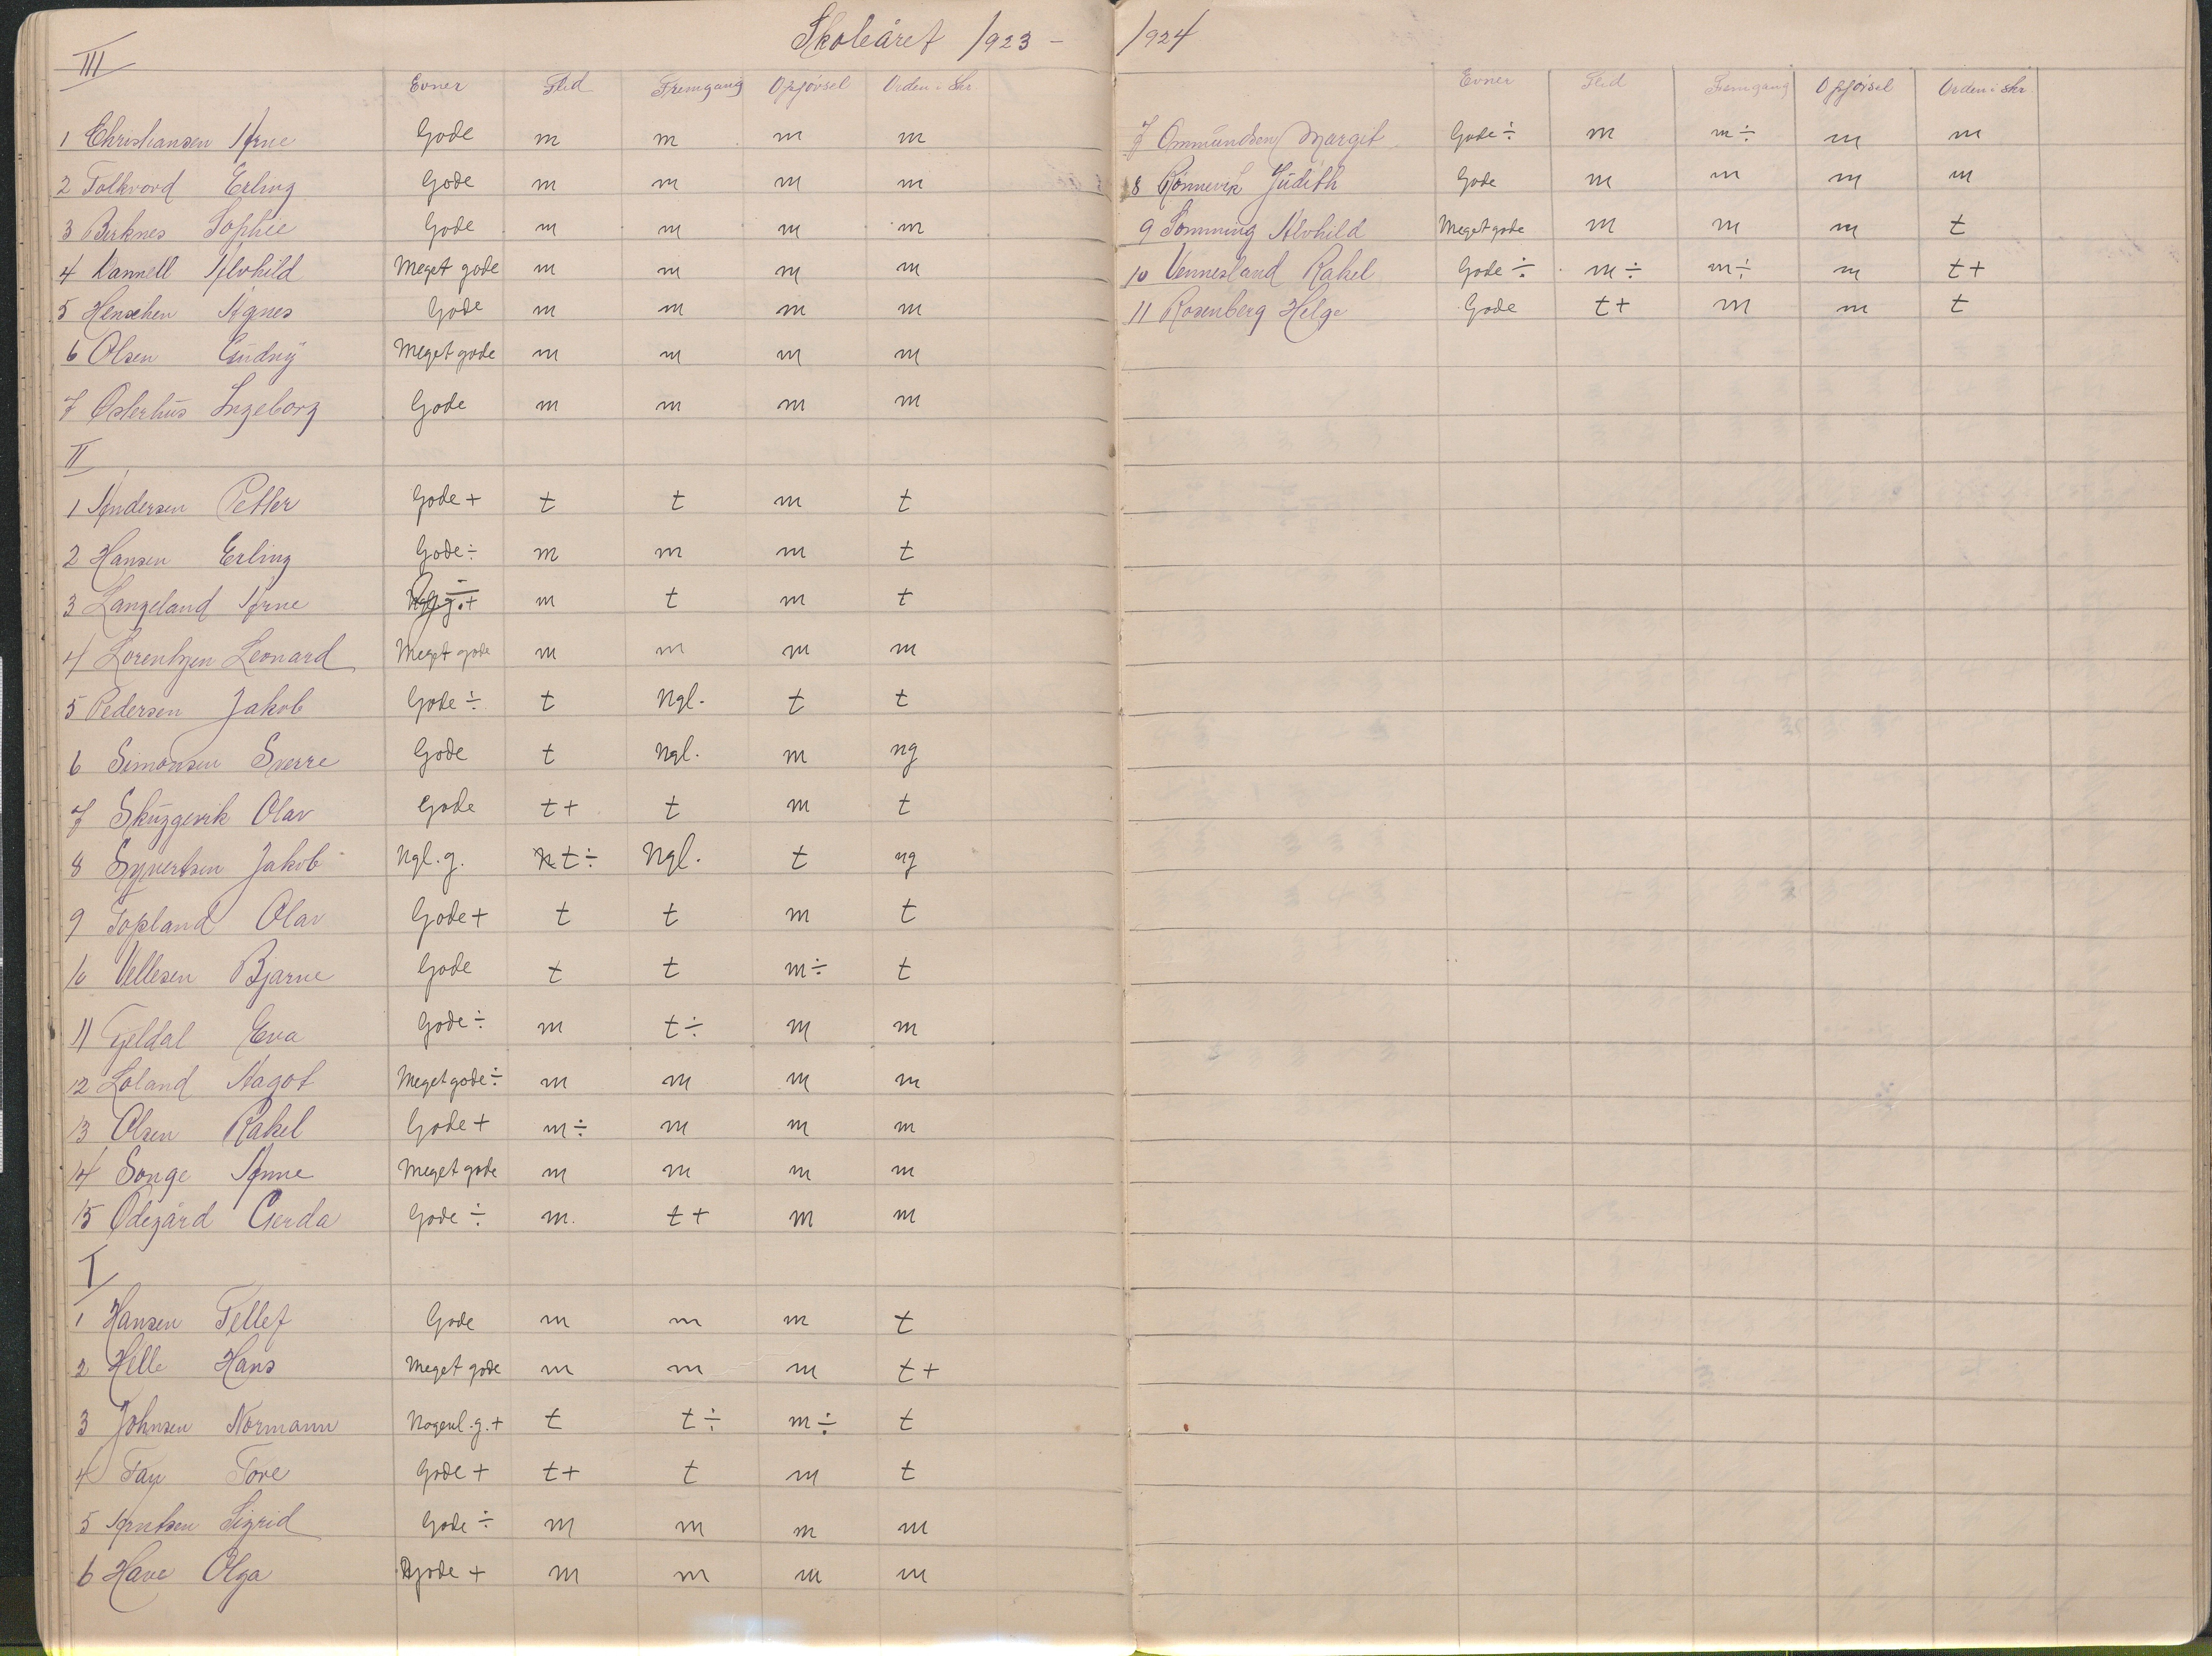 Skoleåret 1923 - 1924
III
Evner Flid Fremgang Opførsel Orden i Skr.
1 Christiansen Arne Gode m m m m
2 Folkvord Erling Gode m m m m
3 Birknes Sophie Gode m m m m
4 Dannell Alvhild Meget gode m m m m
5 Henschen Agnes Gode m m m m
6 Olsen Gudny Meget gode m m m m
7 Osterhus Ingeborg Gode m m m m
II
1 Andersen Petter Gode + t t m t
2 Hansen Erling Gode ÷ m m m t
3 Langeland Arne m t m t
4 Lorentzen Leonard Meget gode m m m m
5 Pedersen Jakob Gode ÷ t Ngl. t t
6 Simonsen Sverre Gode t Ngl. m ng
7 Skuggevik Olav Gode t+ t m t
8 Syvertsen Jakob Ngl. g. t÷ Ngl. t ng
9 Topland Olav Gode + t t m t
10 Vellesen Bjarne Gode t t m÷ t
11 Fjeldal Eva Gode ÷ m t÷ m m
12 Loland Aagot Meget gode ÷ m m m m
13 Olsen Rakel Gode + m÷ m m m
14 Songe Anne Meget gode m m m m
15 Ødegård Gerda Gode ÷ m. t+ m m
I
1 Hansen Tellef Gode m m m t
2 Helle Hans Meget gode m m m t+
3 Johnsen Normann Nogenl. g. + t t÷ m÷ t
4 Fay Tore Gode + t+ t m t
5 Arntsen Sigrid Gode ÷ m m m m
6 Have Olga Gode + m m m m
Evner Flid Fremgang Opførsel Orden i skr
7 Ommundsen Margit Gode ÷ m m÷ m m
8 Rønnevik Judith Gode m m m m
9 Lømming Alvhild Meget gode m m m t
10 Vennesland Rakel Gode ÷ m÷ m÷ m t+
11 Rosenberg Helge Gode t+ m m t